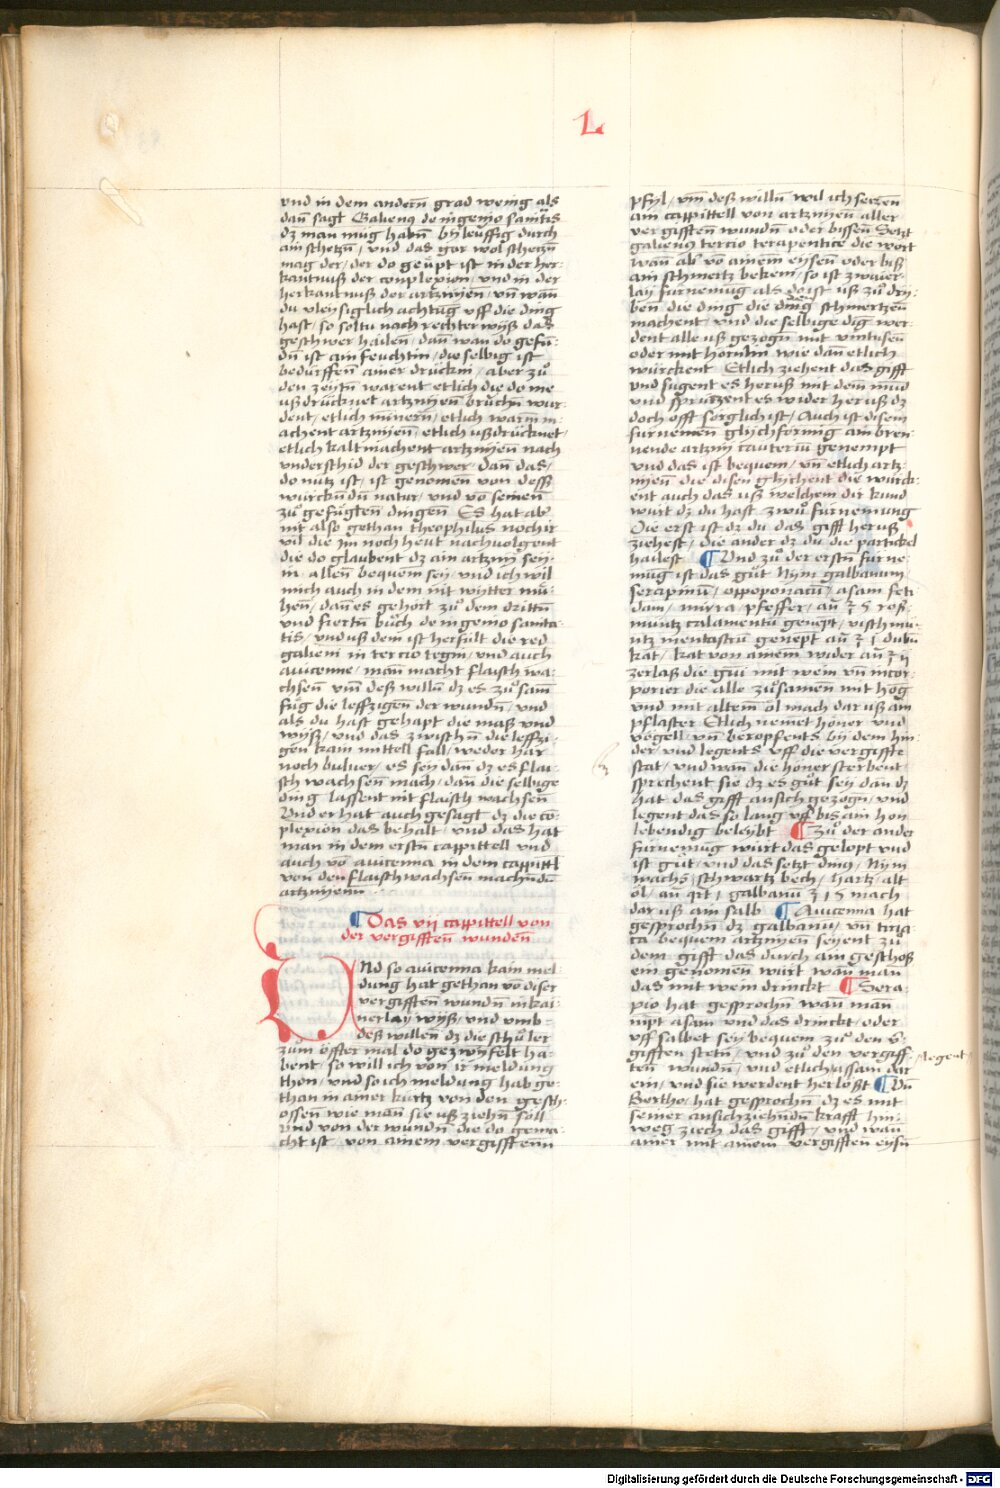 L
vnd in dem andern̄ grad wenig als
dan̄ sagt Galienꝰ de ingenio sanitis
dz man mūg habn̄ bÿleüffig durch
ain schetzn̄ / vnd das gar wol schetzn̄
mag der / der do geüpt ist in der her
kantnuß der conplexion / vnd in der
herkantnuß der artznÿen / vn̄ wan̄
du vleysiglich achtūg vff die ding
hast / so soltu nach rechter wÿß das
geschwer hailen / dan̄ wan do gefu
dn̄ ist ain feuchtin / die selbig ist
bedürffen̄ ainer drückin / aber zů
den zeytn̄ warent etlich die do me
ußdrücknet artznÿen brüchn̄ wur
dent / etlich mīnern / etlich warm m
achent artznÿen / etlich ußdrücknet /
etlich kalt machent artznÿen nach
vnderschid der geschwer / dan̄ das /
do nutz ist / ist genomen von dess
würckn̄dn̄ natur / vnd vō seinen̄
zů gefügten̄ dingen̄ Es hat ab
nit also gethan theophilus noch ir
vil die ym noch heut nachuolgent
die do glaubent dz ain artznÿ sey
in allen̄ bequem sey / vnd ich wil
mich auch in dem nit wytter mü
hen / dan̄ es gehort zů dem drittn̄
vnd fiertn̄ bůch de ingenio sanita
tis / vnd uß dem ist herfült die red
galieni in tercio tegni / vnd auch
auicenne / man̄ macht flaisch wa
chsen̄ vm̄ deß willn̄ dz es zů sam̄
füg die leffzigen der wundn̄ / vnd
als du hast gehapt die maß vnd
wÿß / vnd das zwischn̄ die leffzi
gen kain mittell fall / weder här
noch buluer / es sey dan̄ dz es flai
sch wachsen̄ mach / dan̄ die selbige
ding lassent nit flaisch wachsen̄
Vnd er hat auch gesagt dz die co
plexion das behalt / vnd das hat
man in dem erstn̄ cappittell vnd
auch vō auicenna in dem cappittl
von den flaisch wachsen machn̄dn̄
artznÿenn̄
¶ Das vij cappittell von
der vergifften̄ wunden̄
Vnd so auicenna kain mel
dung hat gethan vō diser
vergifften̄ wundn̄ in kai
nerlay wÿß / vnd vmb
deß willen̄ dz die schůler
zům öffter mal do gezwÿfelt ha
bent / so will ich von ir meldung
thon / vnd so ich meldung hab ge
than in ainer kürtz von den gesch
ossen̄ wie man̄ sie uß ziehn̄ soll
vnd von der wundn̄ die do gema
cht ist von ainem vergifftenn̄
pfyl / vm̄ deß willn̄ wil ich setzen
ain cappittell von artznÿen aller
vergifften̄ wundn̄ oder bissen̄ Setzt
galienꝰ tercio terapentice die wort
wan̄ ab vō ainem eysen̄ oder biß
ain schmertz bekem / so ist zwaier
lay fürnemūg als do ist uß zů dry
ben̄ die ding die ding schmertzen̄
machent / vnd die selbige dīg wer
dent alle uß gezogn̄ mit vintusen̄
oder mit hornlin wie dan̄ etlich
würckent Etlich ziehent das gifft
vnd sugent es heruß mit dem mūd
vnd sprützent es wider heruß dz
doch offt sorglich ist / Auch ist disem
fürnemen̄ glychförmig ain bren
nende artznÿ cauteriū genempt
vnd das ist bequem / vn̄ etlich artz
nÿen̄ die disen glychent die würck
ent auch das uß welchem dir kund
würt dz du hast zwů fürnemung
Die erst ist dz du das gifft heruß
ziehest / die ander dz du die partickel
hailest ¶ Vnd zů der erstn̄ fürne
mūg ist das gůt Nym galbanum
serapinū / oppoponacū / asam feti
dam / mirra / pfeffer / an̄ ʒ 5 roß
müntz calamentū genēpt / vischmü
ntz mentastrū genēpt an̄ ʒ j dubn̄
kat / kat von ainem wider an̄ ʒ ij
zerlaß die gūi mit wein vn̄ incor
porier die alle zůsamen̄ mit hōg
vnd mit altem̄ öl mach dar uß ain
pflaster Etlich nemēt höner vnd
vögell vn̄ beropfents bÿ dem hin
der vnd legents vff die vergiffte
stat / vnd wan̄ die höner sterbent
sprechent sie dz es gůt sey dan̄ dz
hat das gifft an sich gezogn̄ / vnd
legent das so lang vff bis ain hon
lebendig beleÿbt ¶ Zů der ander
fürnemūg würt das gelopt vnd
ist gůt / vnd das setzt dinꝰ / Nym
wachs / schwartz bech / hartz / alt
öl / an̄ qrt j galbanū ʒ j 5 mach
dar uß ain salb ¶ Auicenna hat
gesprochn̄ dz galbanū / vn̄ tiria
ca bequem artznÿen seyent zů
dem gifft das durch ain geschoß
ein genomen̄ würt wan̄ man̄
das mit wein drinckt ¶ Sera
pio hat gesprochn̄ wan̄ man̄
nīpt asam vnd das drinckt / oder
vff salbet sey bequem zů den v̄
gifften stetn̄ / vnd zů den vergiff
ten̄ wundn̄ / vnd etlich asam dar
legent
ein / vnd sie werdent herlößt ¶ Dn̄
Bertho / hat gesprochn̄ dz es mit
seiner an sich ziehn̄dn̄ krafft hin
weg ziech das gifft / vnd wan̄
ainer mit ainem̄ vergifften̄ eysn̄